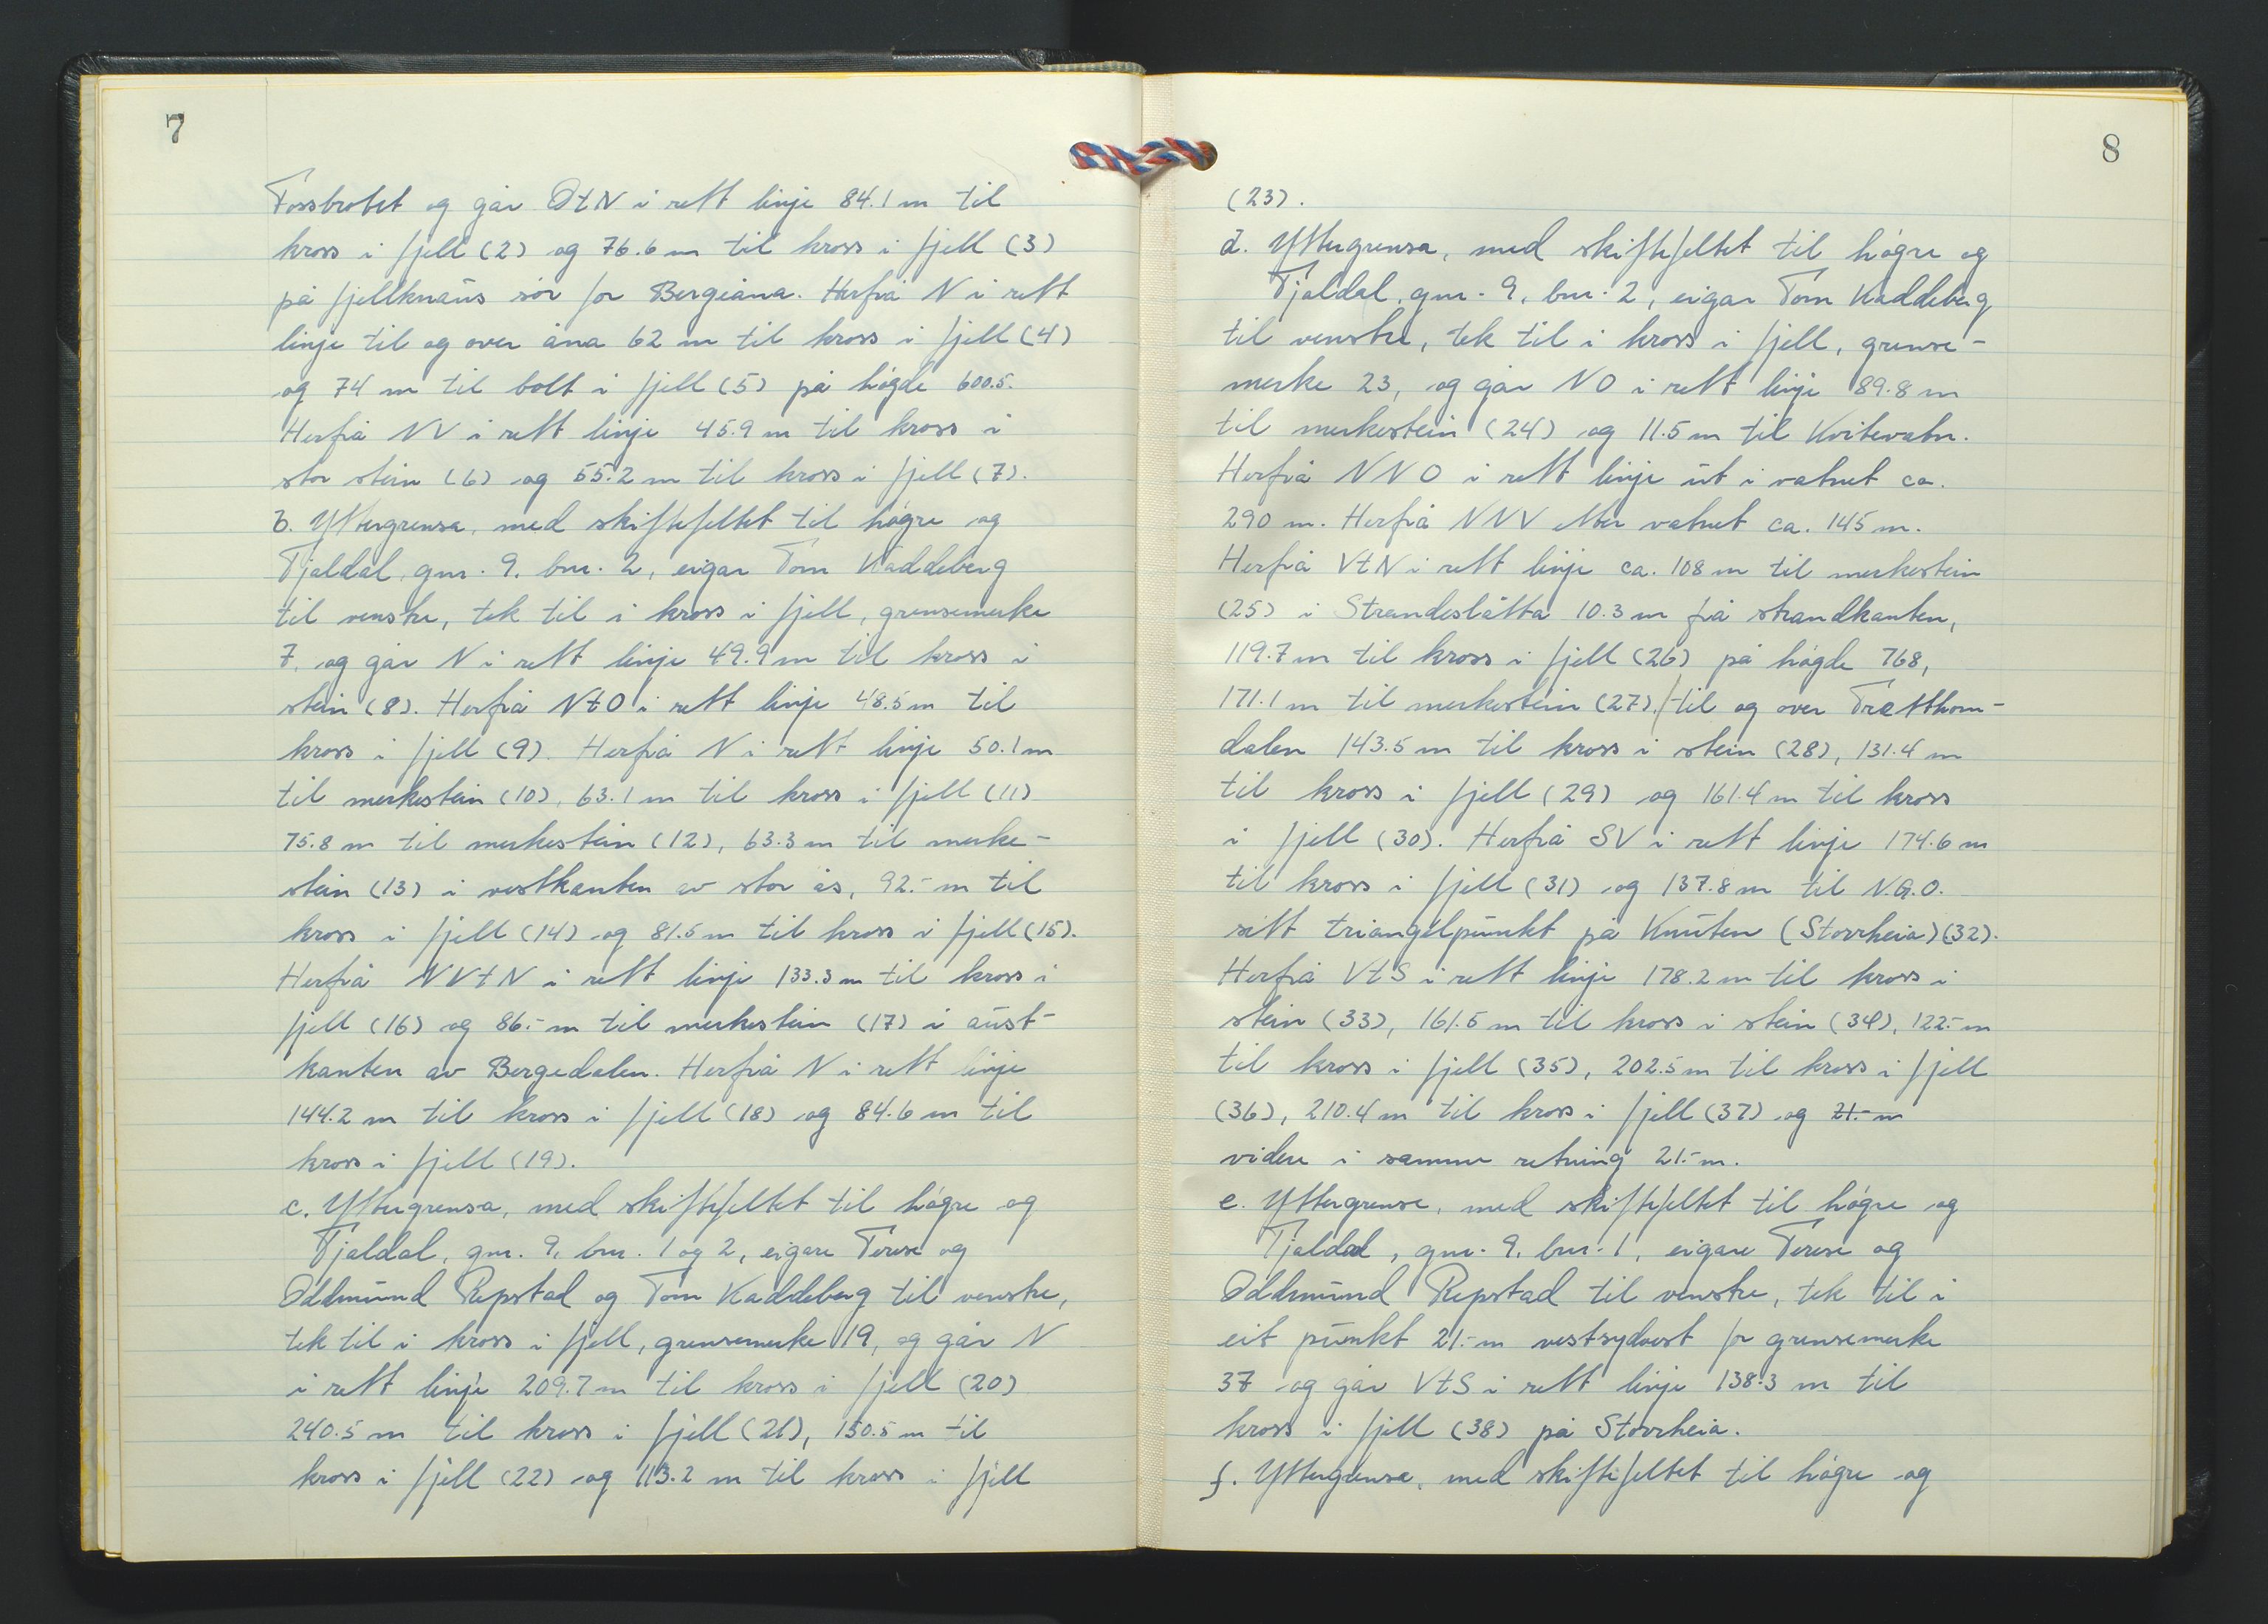 7
Fossbrotet og går OtN i rett linje 84.1 m til
kross i fjell (2) og 76.6 m til kross i fjell (3)
på fjellknaus sør for Bergeåna. Herfrå N i rett
linje til og over åna 62 m til kross i fjell (4)
og 74 m til bolt i fjell (5) på høgde 600.5.
Herfrå NV i rett linje 45.9 m til kross i
stor stein (6) og 55.2 m til kross i fjell (7).
b. Yttergrensa, med skiftefeltet til høgre og
Tjaldal, gnr. 9, bnr. 2, eigar Tom Kaddeberg
til venstre, tek til i kross i fjell, grensemerke
7, og går N i rett linje 49.9 m til kross i
stein (8). Herfrå NtO i rett linje 48.5 m til
kross i fjell (9). Herfrå N i rett linje 50.1 m
til merkestein (10), 63.1 m til kross i fjell (11)
75.8 m til merkestein (12), 63.3 m til merke-
stein (13) i vestkanten av stor ås, 92.- m til
kross i fjell (14) og 81.5 m til kross i fjell (15).
Herfrå NVtN i rett linje 133.3 m til kross i
fjell (16) og 86.- m til merkestein (17) i aust-
kanten av Bergedalen. Herfrå N i rett linje
144.2 m til kross i fjell (18) og 84.6 m til
kross i fjell (19).
c. Yttergrensa, med skiftefeltet til høgre og
Tjaldal, gnr. 9, bnr. 1 og 2, eigare Terese og
Oddmund Repstad og Tom Kaddeberg til venstre,
tek til i kross i fjell, grensemerke 19, og går N
i rett linje 209.7 m til kross i fjell (20)
240.5 m til kross i fjell (21), 150.5 m til
kross i fjell (22) og 113.2 m til kross i fjell
8
(23).
d. Yttergrensa, med skiftefeltet til høgre og
Tjaldal, gnr. 9, bnr. 2, eigar Tom Kaddeberg
til venstre, tek til i kross i fjell, grense-
merke 23, og går NO i rett linje 89.8 m
til merkestein (24) og 11.5 m til Kvitevatn.
Herfrå NNO i rett linje ut i vatnet ca.
290 m. Herfrå NNV etter vatnet ca. 145 m.
Herfrå VtN i rett linje ca. 108 m til merkestein
(25) i Strandeslåtta 10.3 m frå strandkanten,
119.7 m til kross i fjell (26) på høgde 768,
171.1 m til merkestein (27), til og over Tretthom-
dalen 143.5 m til kross i stein (28), 131.4 m
til kross i fjell (29) og 161.4 m til kross
i fjell (30). Herfrå SV i rett linje 174.6 m
til kross i fjell (31) og 137.8 m til N.G.O.
sitt triangelpunkt på Knuten (Storrheia) (32).
Herfrå VtS i rett linje 178.2 m til kross i
stein (33), 161.5 m til kross i stein (34), 122.- m
til kross i fjell (35), 202.5 m til kross i fjell
(36), 210.4 m til kross i fjell (37) og 21.- m
videre i samme retning 21.- m.
e. Yttergrense, med skiftefeltet til høgre og
Tjaldal, gnr. 9, bnr. 1, eigare Terese og
Oddmund Repstad til venstre, tek til i
eit punkt 21.- m vestsydvest for grensemerke
37 og går VtS i rett linje 138.3 m til
kross i fjell (38) på Storrheia.
f. Yttergrensa, med skiftefeltet til høgre og